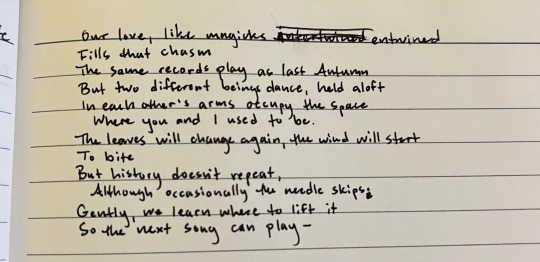 Our love, like magicks entertwined entwined
Fills that chasm
The same records play as last Autumn
But two different beings dance, held aloft
In each other's arms occupy the space
Where you and I used to be.
The leaves will change again, the wind will start
To bite
But history doesn't repeat,
Although occasionally the needle skips;
Gently, we learn where to lift it
So the next song can play–